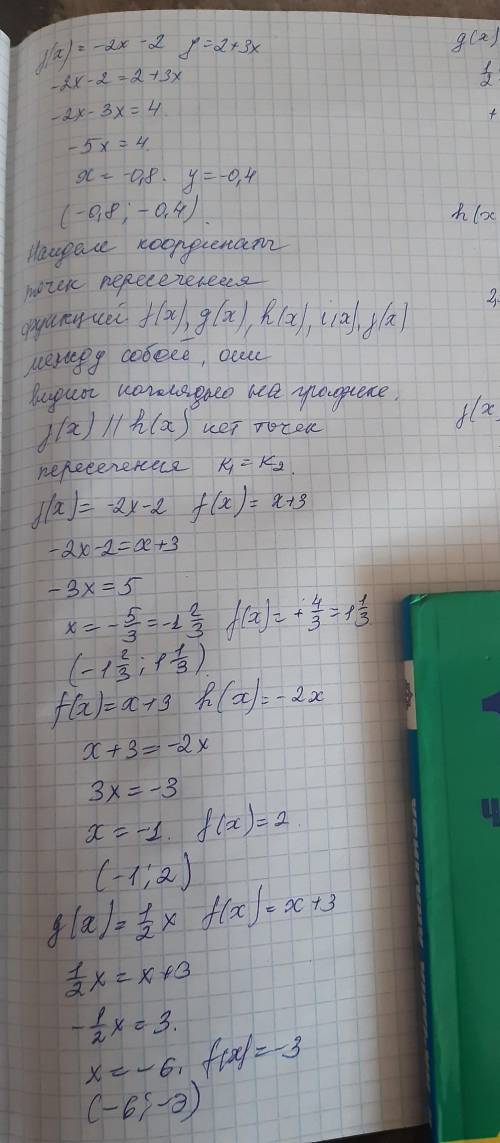 j(x) = -2x - 2   y = 2 + 3x
-2x - 2 = 2 + 3x
-2x - 3x = 4.
-5x = 4.
x = -0,8.   y = -0,4
(-0,8 ; -0,4).
Найдем координаты
точек пересечения
функций f(x), g(x), h(x), i(x), j(x)
между собой, они
видны наглядно на графике.
j(x) // h(x) нет точек
пересечения   K₁ = K₂.
j(x) = -2x - 2   f(x) = x + 3
-2x - 2 = x + 3
-3x = 5
x = -5/3 = -1 2/3   f(x) = +4/3 = 1 1/3
(-1 2/3 ; 1 1/3).
f(x) = x + 3   h(x) = -2x
x + 3 = -2x
3x = -3
x = -1.   f(x) = 2
(-1 ; 2)
g(x) = 1/2 x   f(x) = x + 3
1/2 x = x + 3
-1/2 x = 3.
x = -6,   f(x) = -3
(-6 ; -3)
g(x)
1/2
+
h(x
2,
j(x